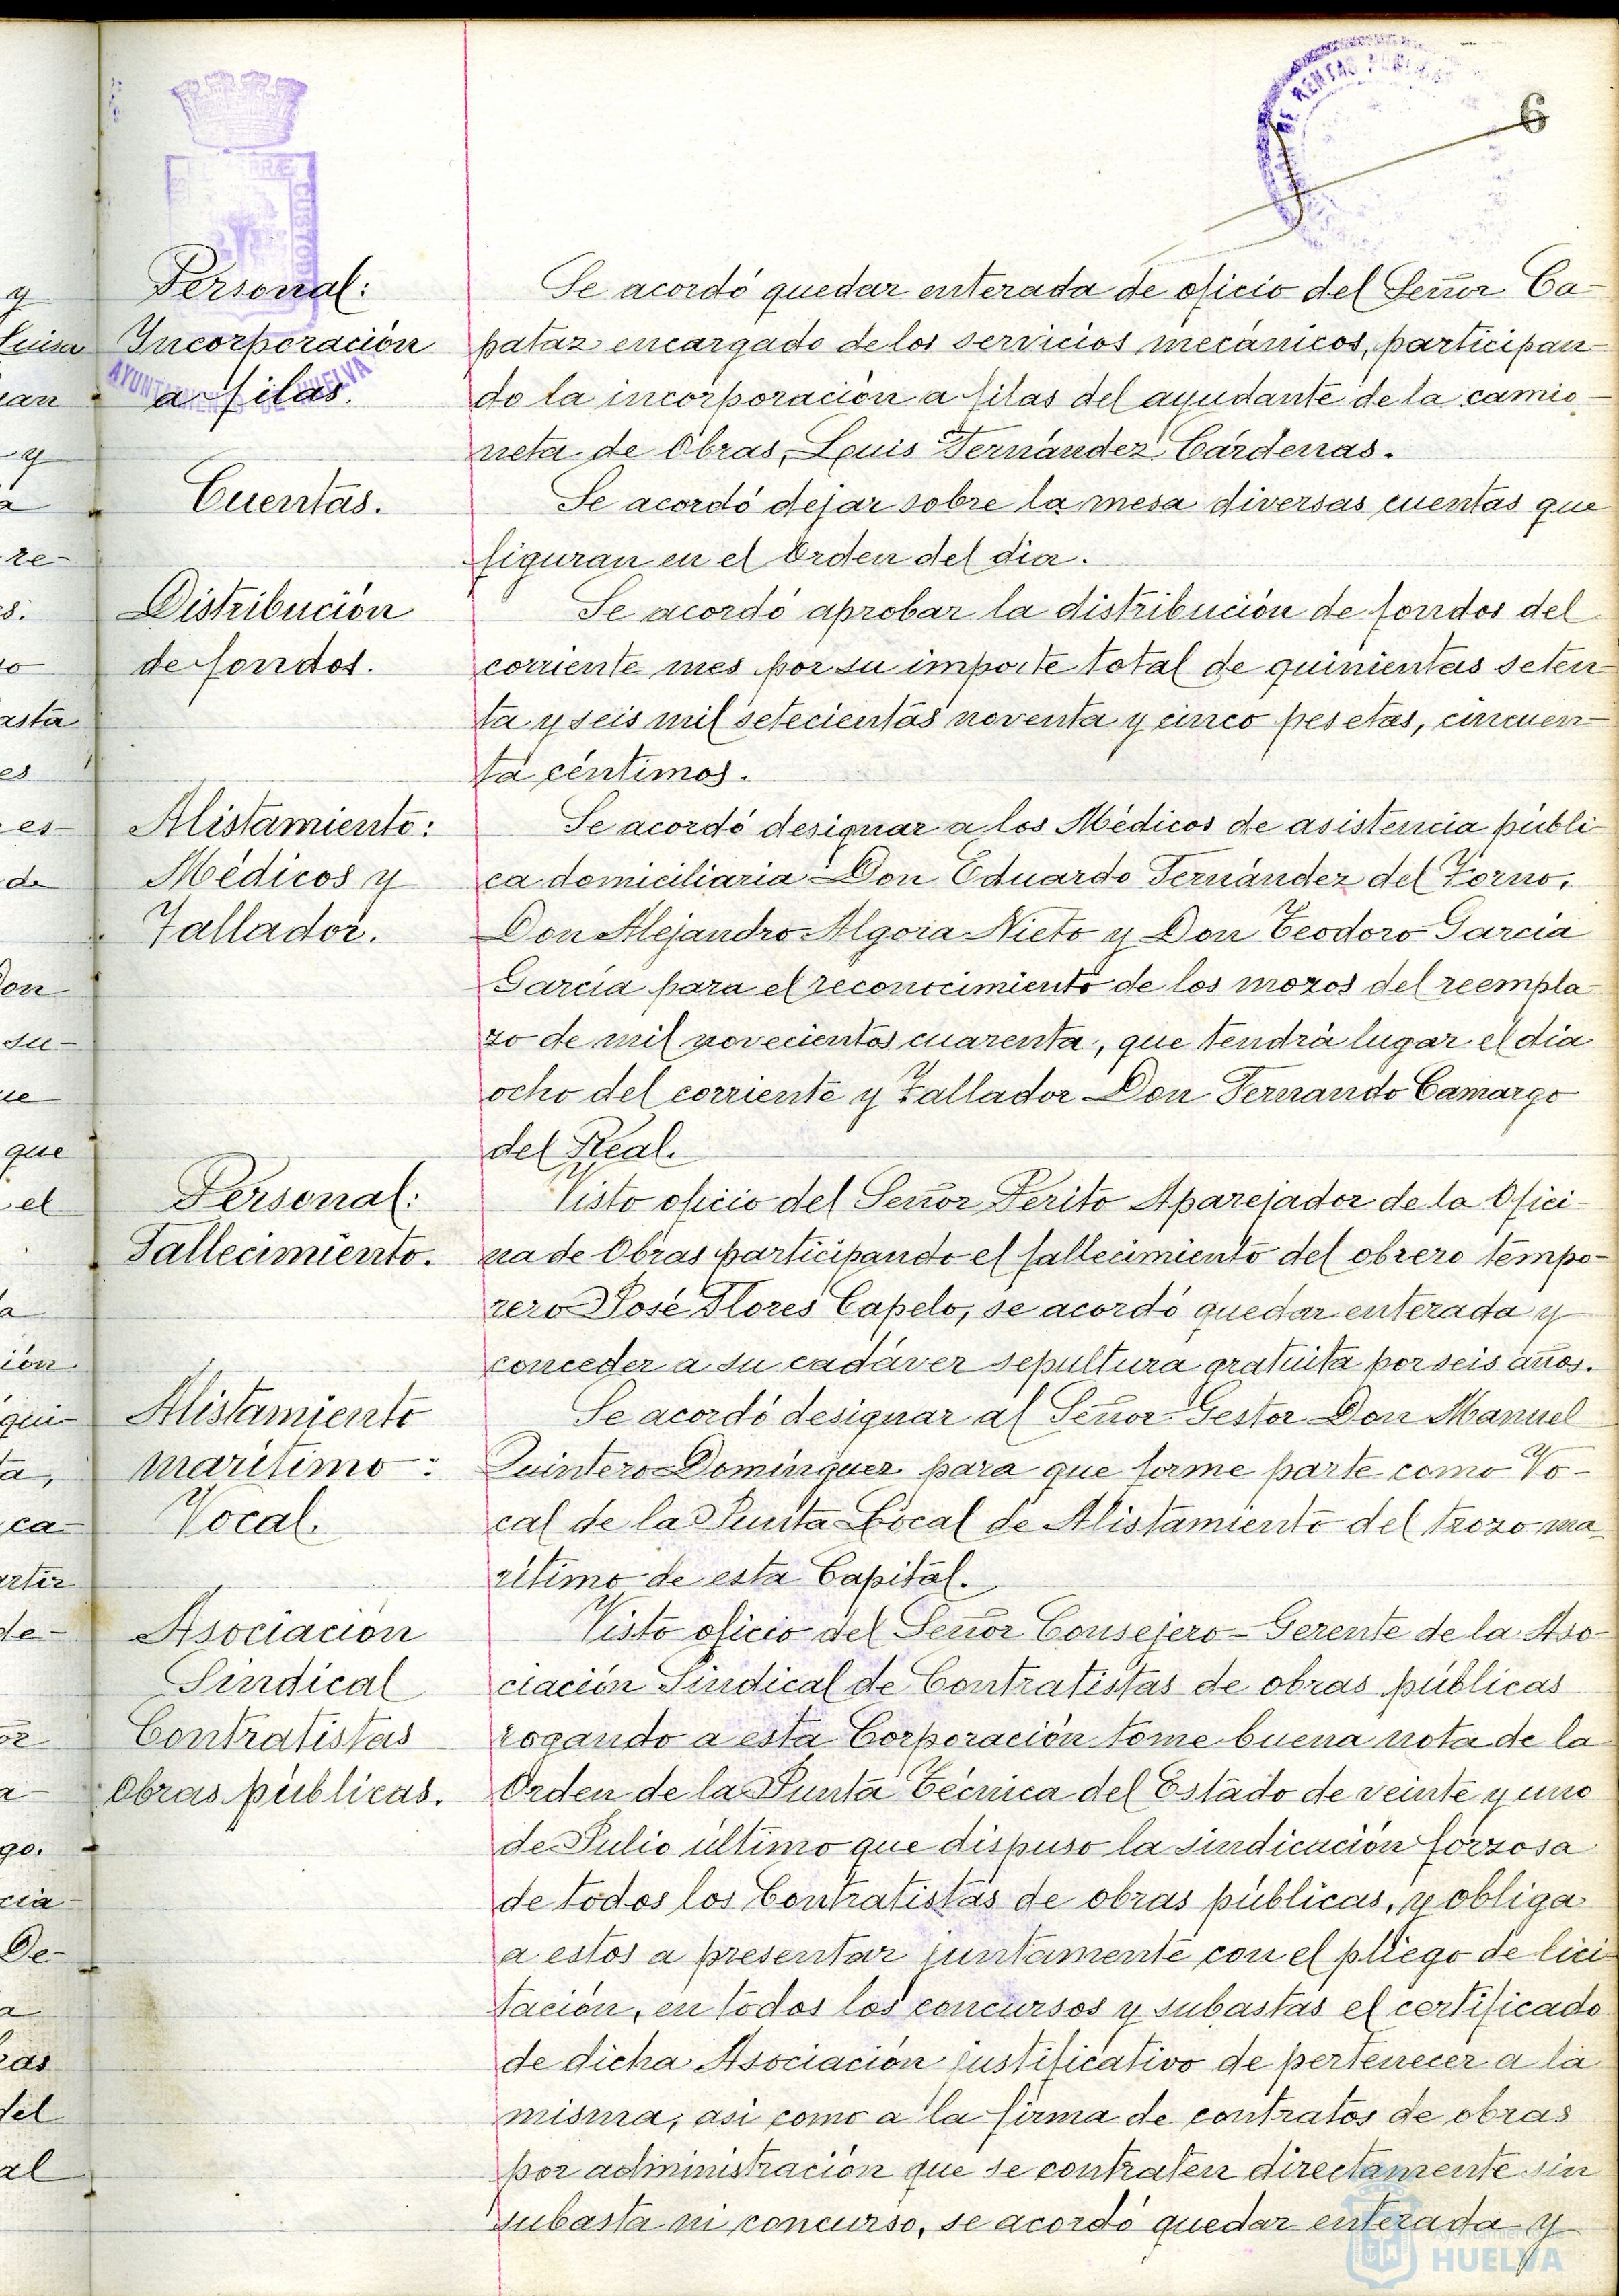 6
Personal:
Incorporación
a filas.
Se acordó quedar enterada de oficio del Señor Ca-
pataz encargado de los servicios mecánicos, participan-
do la incorporación a filas del ayudante de la camio-
neta de Obras, Luis Fernández Cárdenas.
Cuentas.
Se acordó dejar sobre la mesa diversas cuentas que
figuran en el Orden del dia.
Distribución
de fondos.
Se acordó aprobar la distribución de fondos del
corriente mes por su importe total de quinientas seten-
ta y seis mil setecientas noventa y cinco pesetas, cincuen-
ta céntimos.
Alistamiento:
Médicos y
Tallador.
Se acordó designar a los Médicos de asistencia públi-
ca domiciliaria Don Eduardo Fernández del Torno,
Don Alejandro Algora Nieto y Don Teodoro García
García para el reconocimiento de los mozos del reempla-
zo de mil novecientos cuarenta, que tendrá lugar el día
ocho del corriente y Tallador Don Fernando Camargo
del Real.
Personal:
Fallecimiento.
Visto oficio del Señor Perito Aparejador de la Ofici-
na de Obras participando el fallecimiento del obrero tempo-
rero José Flores Capelo, se acordó quedar enterada y
conceder a su cadáver sepultura gratuita por seis años.
Alistamiento
marítimo:
Vocal.
Se acordó designar al Señor Gestor Don Manuel
Quintero Domínguez para que forme parte como Vo-
cal de la Junta Local de Alistamiento del trozo ma-
rítimo de esta Capital.
Asociación
Sindical
Contratistas
Obras públicas.
Visto oficio del Señor Consejero-Gerente de la Aso-
ciación Sindical de Contratistas de obras públicas
rogando a esta Corporación tome buena nota de la
Orden de la Junta Técnica del Estado de veinte y uno
de Julio último que dispuso la sindicación forzosa
de todos los Contratistas de obras públicas, y obliga
a estos a presentar juntamente con el pliego de lici-
tación, en todos los concursos y subastas el certificado
de dicha Asociación justificativo de pertenecer a la
misma, asi como a la firma de contratos de obras
por administración que se contraten directamente sin
subasta ni concurso, se acordó quedar enterada y
AYUNTAMIENTO DE HUELVA
DE RENTAS PUBLICAS
Ayuntamiento de
HUELVA